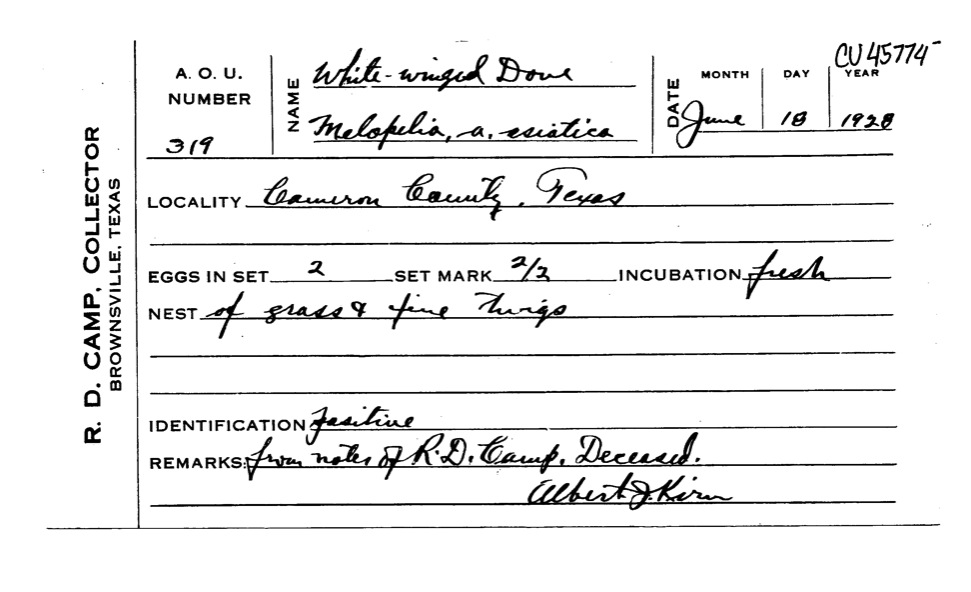 CU 45774
R. D. CAMP, COLLECTOR
BROWNSVILLE, TEXAS
A. O. U.
NUMBER
319
NAME White-winged Dove
Melopelia, a. asiatica
DATE
MONTH DAY YEAR
June 18 1928
LOCALITY Cameron County, Texas
EGGS IN SET 2 SET MARK 2/2 INCUBATION fresh
NEST of grass & fine twigs
IDENTIFICATION Positive
REMARKS: from notes of R.D. Camp. Deceased.
Albert J. Kirn